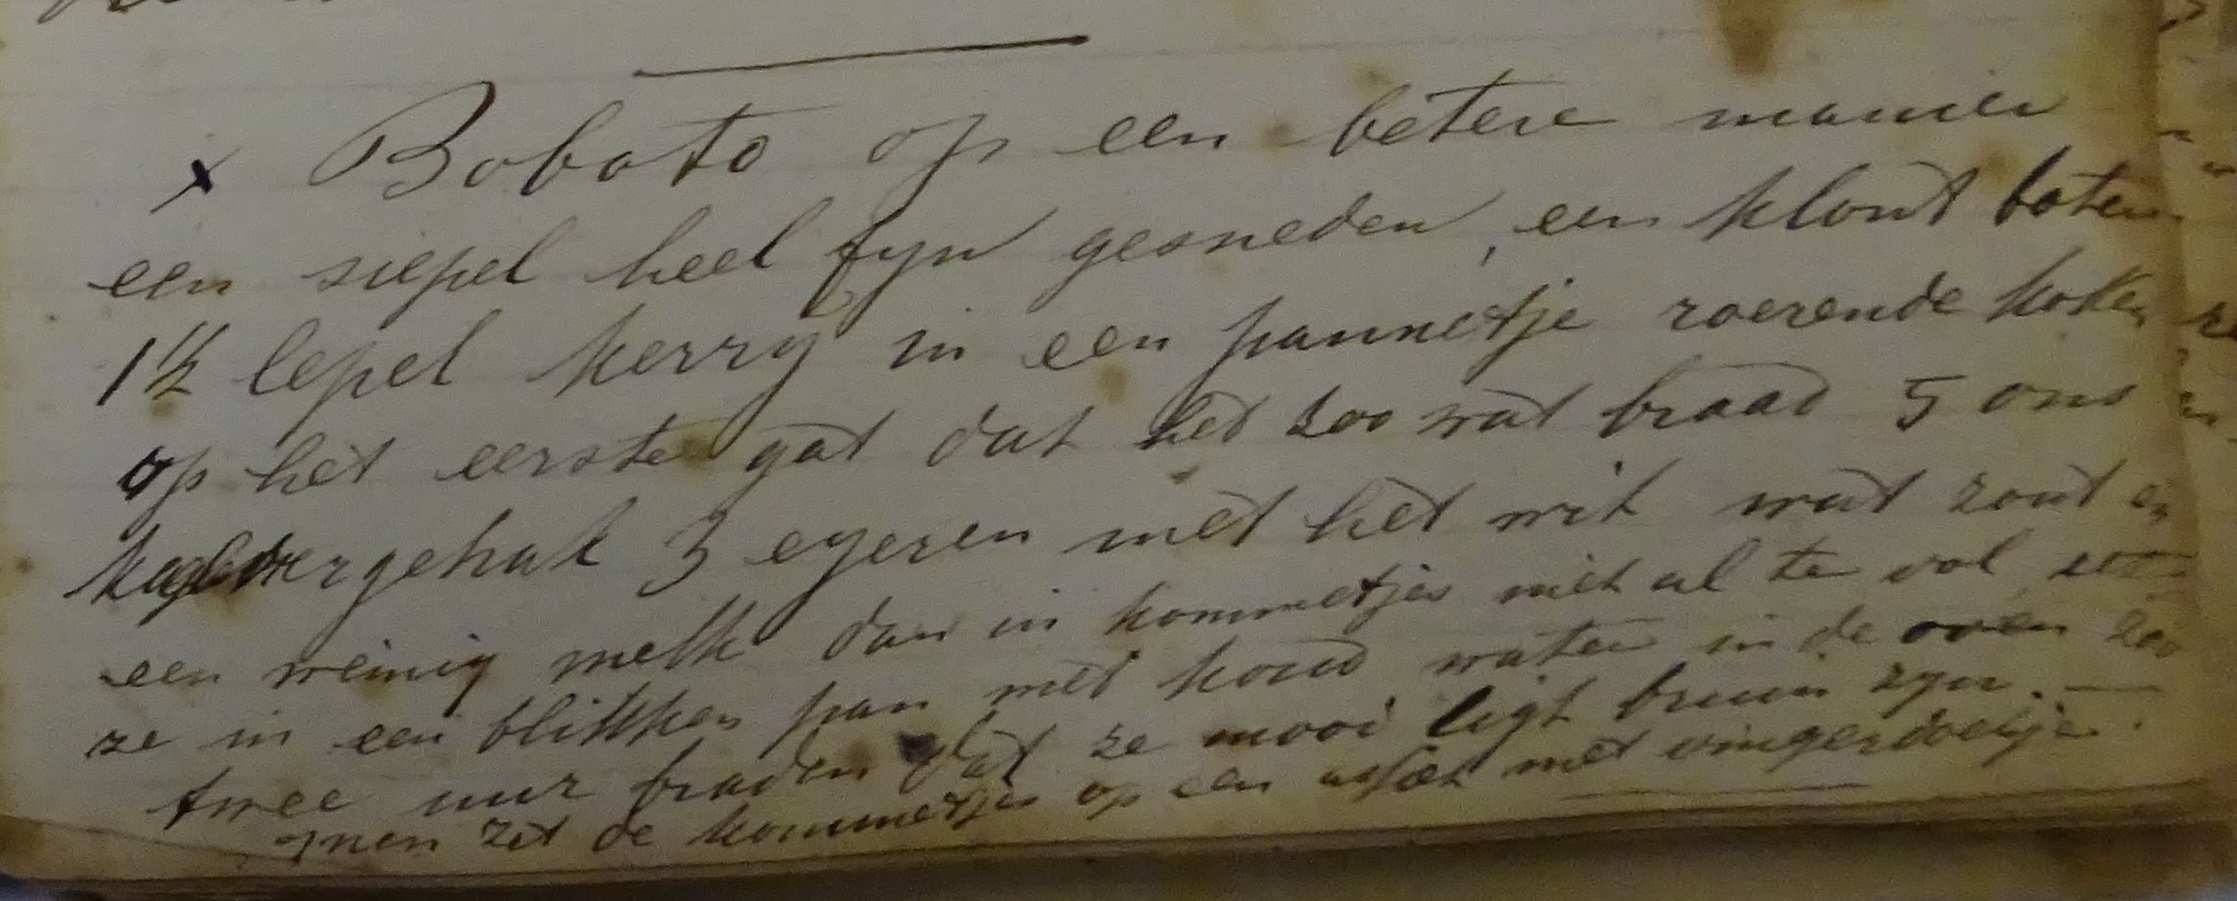 x Boboto op een betere manier
een siepel heel fyn gesneden, een klont boter
1 1/2 lepel kerry in een pannetje roerende koken
op het eerste gat dat het zoo wat braad 5 ons
kalvergehak 3 eyeren met het wit wat zout en
een weinig melk dan in kommetjes niet al te vol zet
ze in een blikken pan met koud water in de oven zoo
twee uur braden dat ze mooi ligt bruin zyn. —
men zet de kommetjes op een asjet met vingerdoekje.